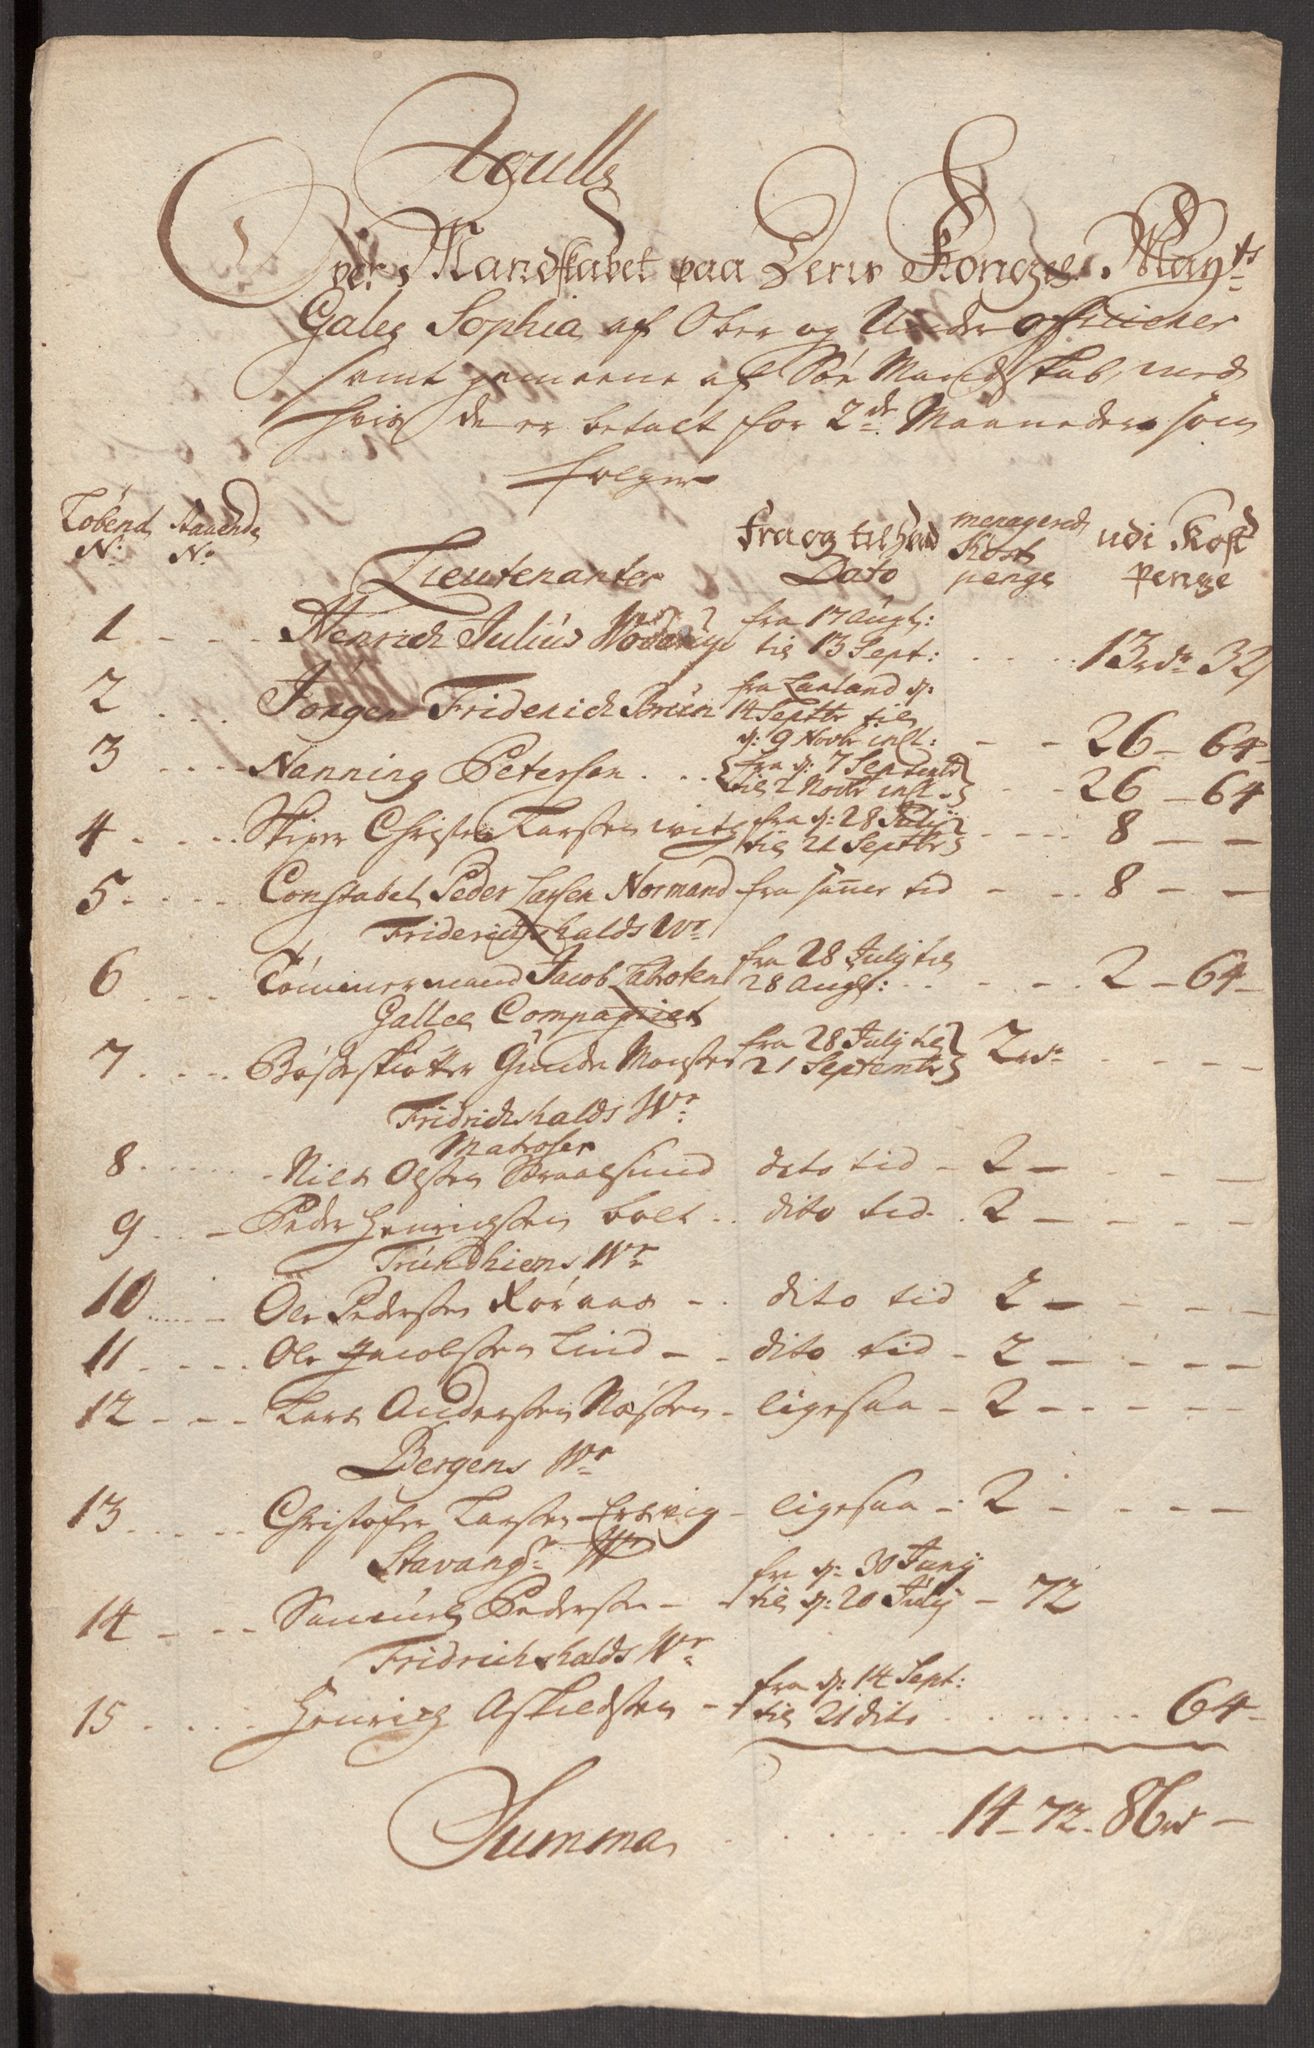 Roulle
Over Mandskabet paa Deris Kongel: Mayts
Galee Sophia af Ober og Under officierer
samt gemeene af Söe Mandskab, med
hvis de er betalt for 2de Maaneder som
følger
Löbend Staaende fra og til hvad menagered udi Kost
No. No Dato Kost penge penge
Lieutenanter
1 Henrich Julius fra 17 Augt: til 13 Sept: 13 rdr 32
2 Jörgen Friderich Brun fra Laaland d: 14 Septbr til d: 9 Novbr inst: 26 - 64
3 Nanning Petersen fra d: 7 Septembr til 2 Novbr inst. 26 - 64
4 Skiper Christen Larssen fra d: 28 July til 21 Septbr 8 - -
5 Constabel Peder Larsen Normand fra samer tid 8 - -
Friderichshalds Wr
6 Tömmermand Jacob fra 28 July til 28 Augt: 2 - 64
Gallee Compagniet
7 Bösseskiötter Gunde Monssen fra 28 July til 21 Septembr 2 rdr
Fridrichshalds Wr
Matroser
8 Niels Olssen dito tid - 2 -
9 Peder Henrichssen bolt dito tid 2 -
Trundhiems Wr
10 Ole Pederssen Röraas dito tid 2 -
11 Ole Jacobssen Lind dito tid - 2 -
12 Lars Anderssen Næssen ligesaa - 2 -
Bergens Wr
13 Christofer Larssen ligesaa - 2 -
Stavangr Wr
14 Samuel Pederssen fra d: 30 Juny til d: 20 July - 72
Fridrichshalds Wr
15 Henrich Askildssen fra d: 14 Sept: til 21 dito 64
Summa 14 - 72 - 86 rd -